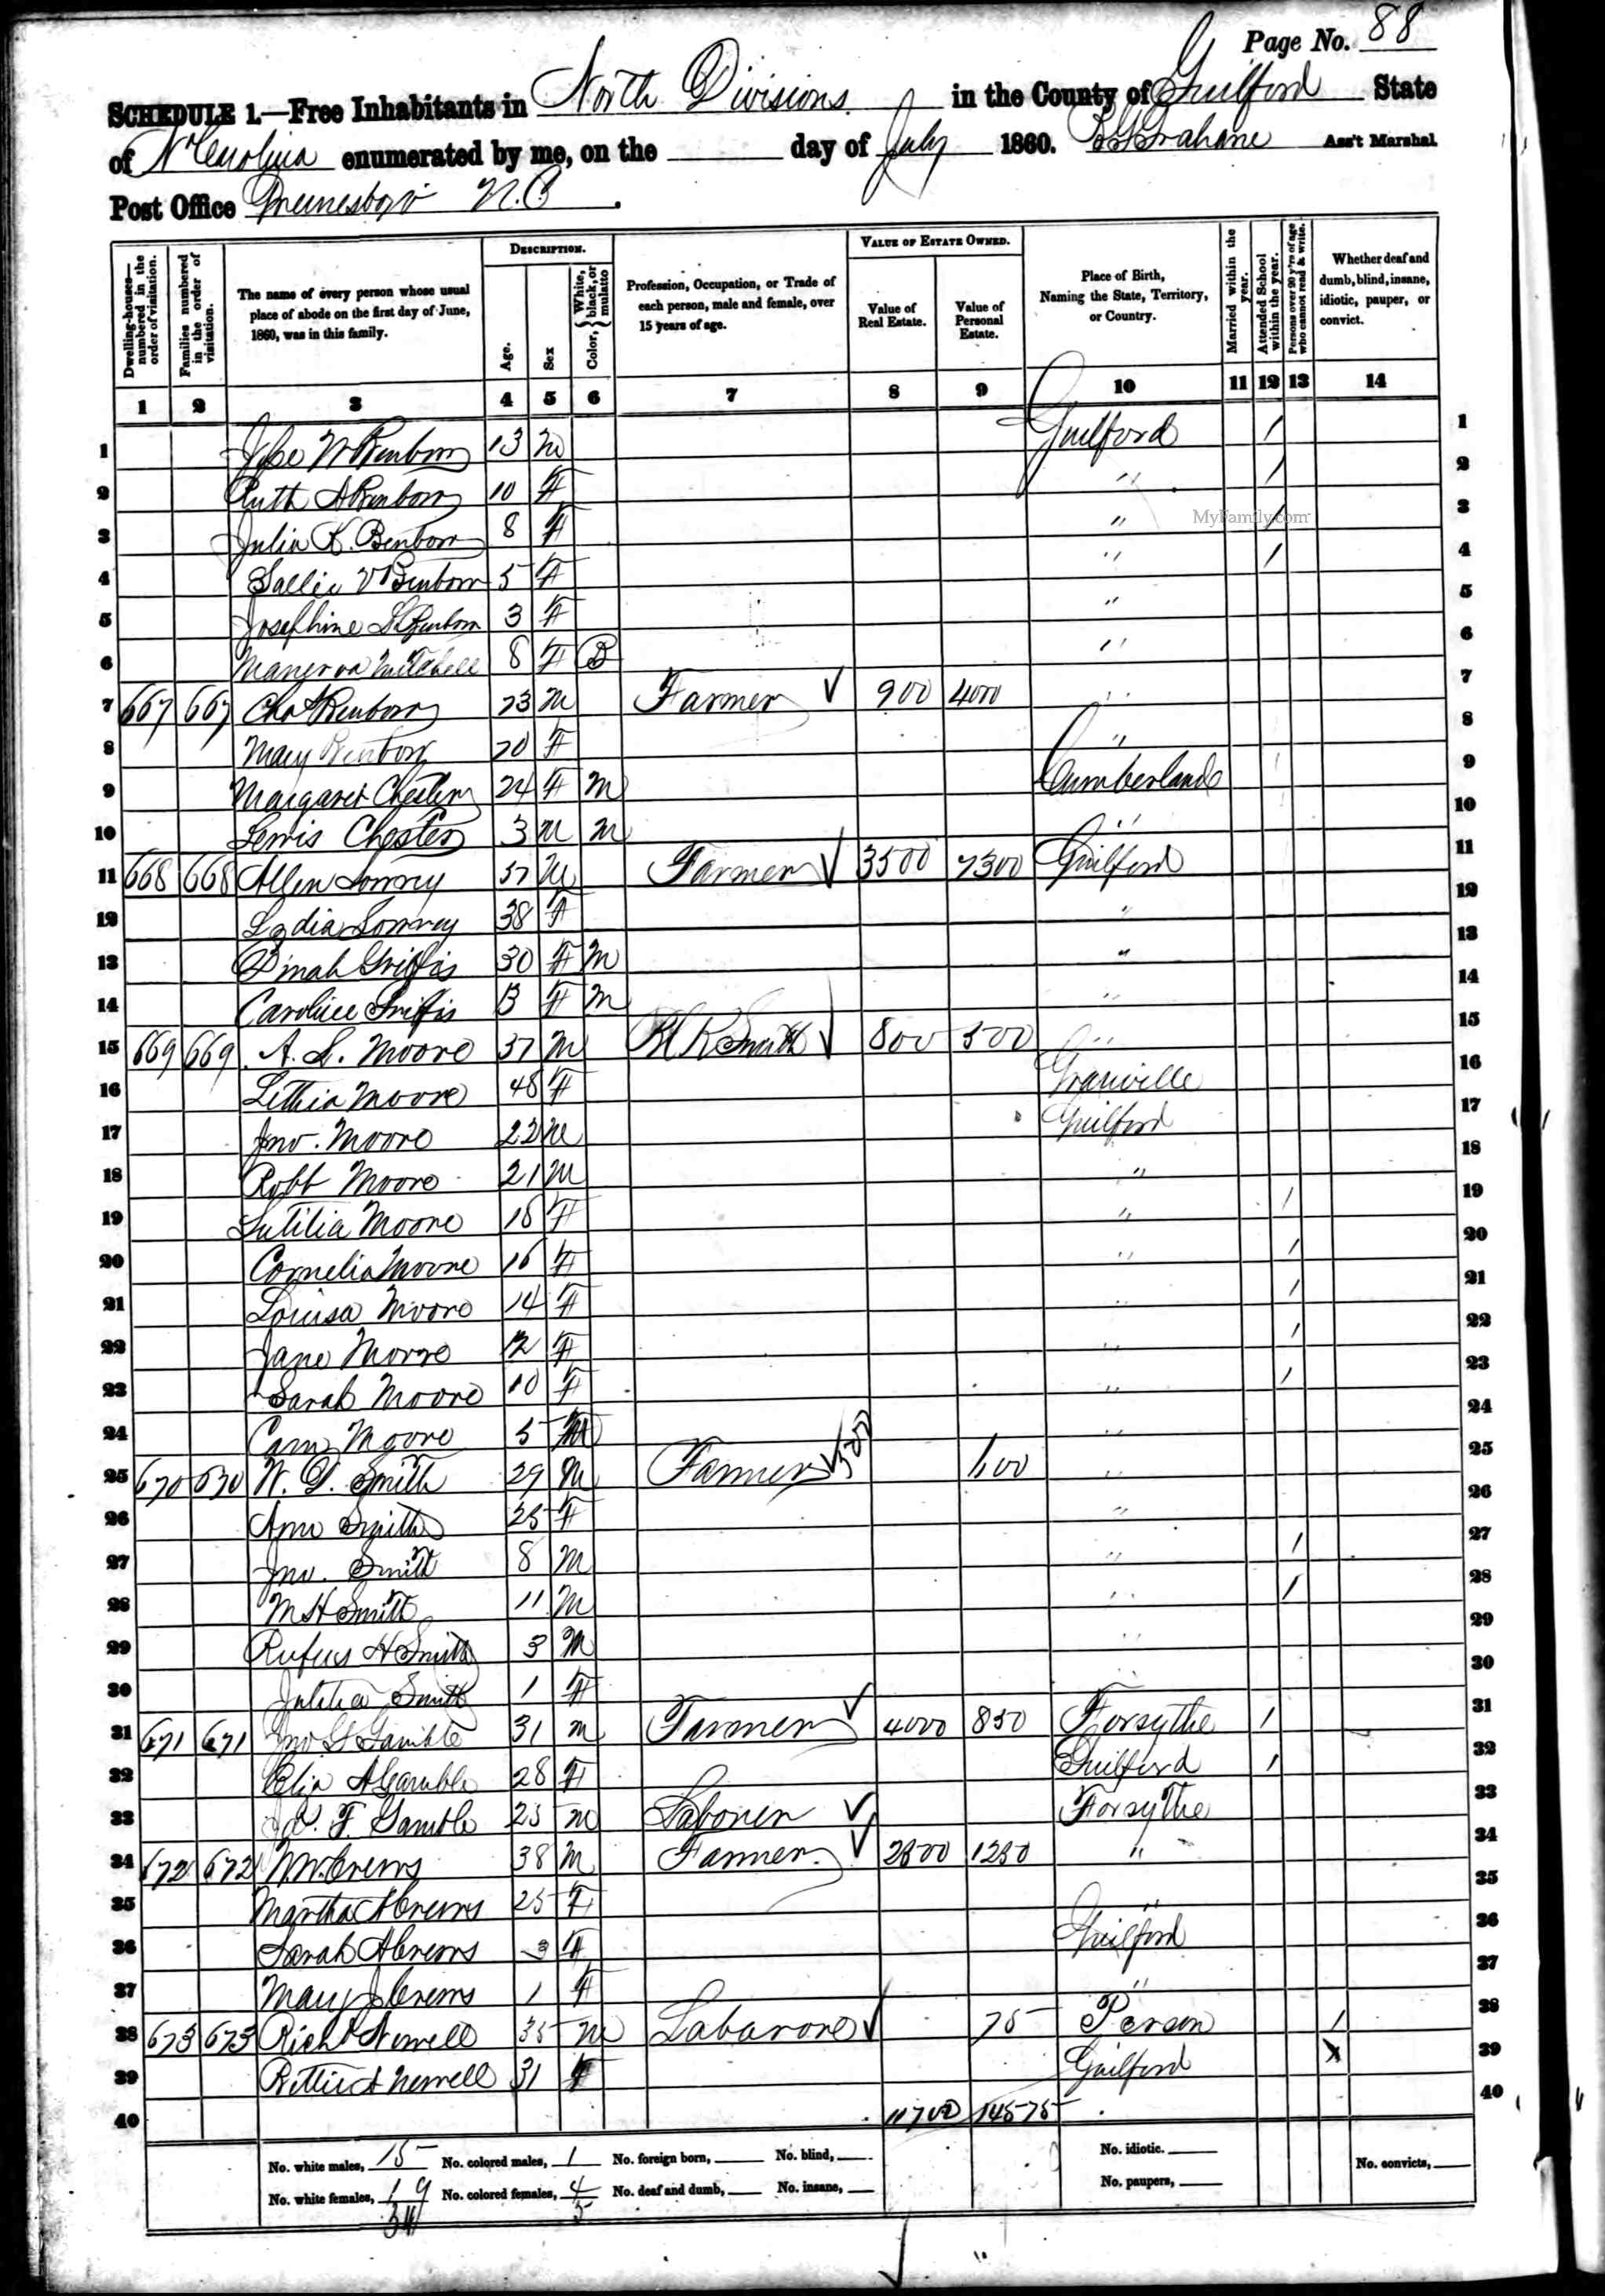 Page No. 88
SCHEDULE 1.—Free Inhabitants in North Divisions in the County of Guilford State
of N Carolina enumerated by me, on the day of July 1860. Ass't Marshal
Post Office Greensboro N.C.
Dwelling-houses—numbered in the order of visitation.
Families numbered in the order of visitation.
The name of every person whose usual place of abode on the first day of June, 1860, was in this family.
DESCRIPTION.
Age.
Sex
Color, { White, black, or mulatto
Profession, Occupation, or Trade of each person, male and female, over 15 years of age.
VALUE OF ESTATE OWNED.
Value of Real Estate.
Value of Personal Estate.
Place of Birth, Naming the State, Territory, or Country.
Married within the year.
Attended School within the year.
Persons over 20 y'rs of age who cannot read & write.
Whether deaf and dumb, blind, insane, idiotic, pauper, or convict.
1 2 3 4 5 6 7 8 9 10 11 12 13 14
1 13 m Guilford / 1
2 Ruth A Benbow 10 F " / 2
3 Julia K. Benbow 8 F " / 3
MyFamily.com
4 Sallie V Benbow 5 F " / 4
5 Josephine Benbow 3 F " 5
6 Mitchell 8 F B " 6
7 667 667 Benbow 23 m Farmer 900 400 " 7
8 Mary Benbow 20 F " 8
9 Margaret Chester 24 F m Cumberland 9
10 Lewis Chester 3 m m " 10
11 668 668 Allen 37 m Farmer 3500 7300 Guilford 11
12 Lydia 38 F " 12
13 Dinah Griffis 30 F m " 13
14 Caroline Griffis 13 F m " 14
15 669 669 A. L. Moore 37 m Bl K Smith 800 500 " 15
16 Lethia Moore 48 F Granville 16
17 Jno. Moore 22 m Guilford 17
18 Robt Moore 21 m " 18
19 Moore 18 F " / 19
20 Cornelia Moore 16 F " / 20
21 Louisa Moore 14 F " / 21
22 Jane Moore 12 F " / 22
23 Sarah Moore 10 F " / 23
24 Cam Moore 5 M " 24
25 670 670 W. D. Smith 29 m Farmer 500 100 " 25
26 Ann Smith 25 F " 26
27 Jno. Smith 8 m " / 27
28 M H Smith 11 m " / 28
29 Rufus H Smith 3 m " 29
30 Smith 1 F " 30
31 671 671 Jno Gamble 31 m Farmer 4000 850 Forsythe / 31
32 Eliz A Gamble 28 F Guilford / 32
33 F. Gamble 25 m Laborer Forsythe 33
34 672 672 Crews 38 m Farmer 1250 " 34
35 Martha A Crews 25 F " 35
36 Sarah A Crews 3 F Guilford 36
37 Mary J Crews 1 F " 37
38 673 673 Newell 35 m Labarore 75 Person / 38
39 Newell 31 F Guilford x 39
40 11700 14575 40
No. white males, 15 No. colored males, 1 No. foreign born, No. blind, No. idiotic. No. convicts,
No. white females, 19 No. colored females, 4 No. deaf and dumb, No. insane, No. paupers,
34 5